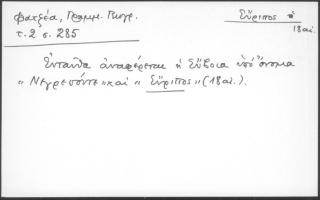 Φατζέα, Γραμμ. Γεωγρ.
τ. 2 σ. 285
Εὔριπος ὁ
18 αἰ.
Ἐνταῦθα ἀναφέρεται ἡ Εὔβοια ὑπό ὄνομα
"Νεγρεπόντε" καί "Εὔριπος" (18 αἰ.).